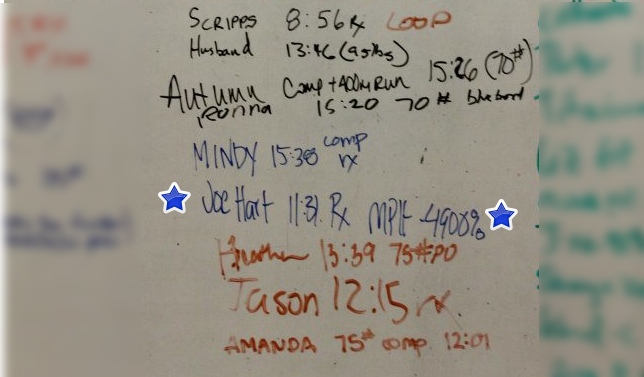 SCRIPPS 8:56 Rx LOOP
Husband 13:46 (95lbs)
Autumn Comp + 400m Run 15:26 (70#)
15:20 70# blue band
MINDY 15:38 comp rx
Joe Hart 11:31 Rx MPH -4900%
Heather 13:39 75# PO
Jason 12:15 rx
AMANDA 75# comp. 12:01